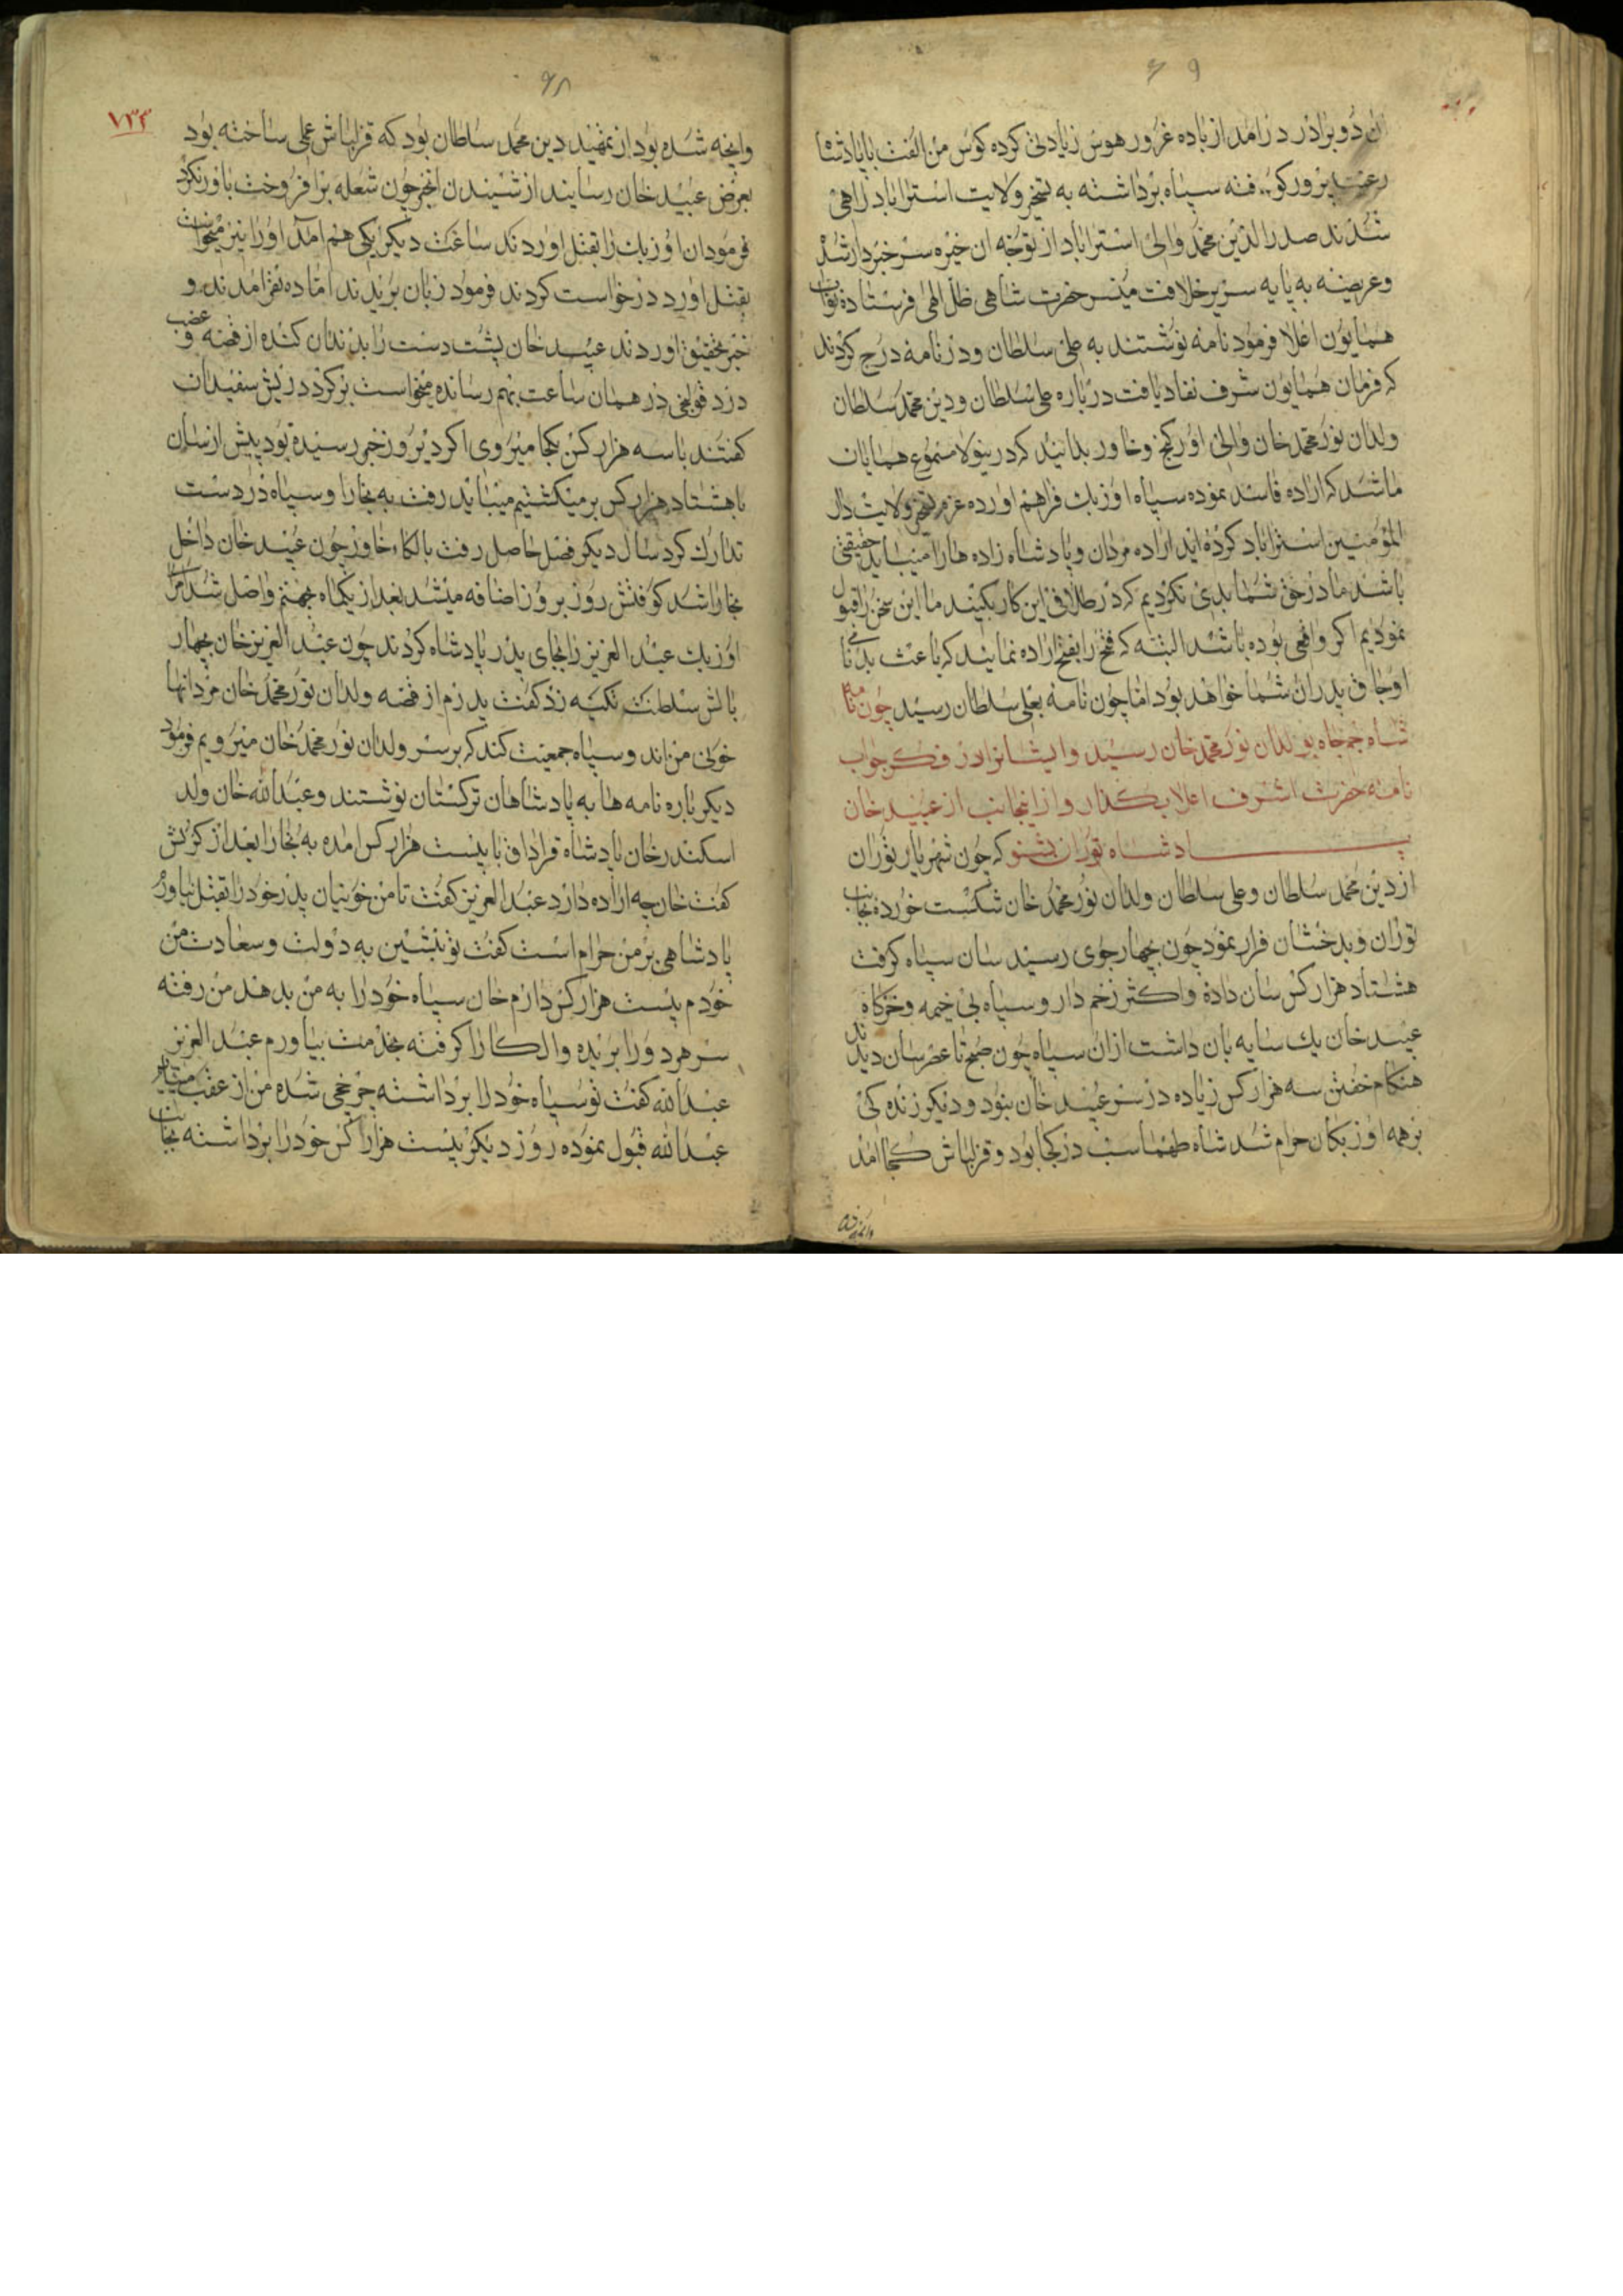 ان دو برادر در امد از باده غرور هوس زیادتی کرده کوس من الفت با پادشاه
رعیت پرور کو فته سپاه برداشته به تسخیر ولایت استراباد راهی
شدند صدرالدین محمد والی استراباد از توجه ان خیره سر خبردار شد
وعریضه به پایه سریر خلافت مسیر حضرت شاهی ظل الهی فرستاده نواب
همایون اعلا فرمود نامه نوشتند به علی سلطان و در نامه درج کردند
که فرمان همایون شرف نفاد یافت در باره علی سلطان و دین محمد سلطان
ولدان نور محمد خان والی اورکنج و خاور بدانید که درینولا مسموع همایان
ما شد که اراده فاسد نموده سپاه اوزبک فراهم اورده عزم تسخیر ولایت دار
المومنین استراباد کرده اید اراده مردان و پادشاه زاده ها را میباید حقیقتی
باشد ما در حق شما بدی نکردیم که در طلافی این کار بکیند ما این سخن را قبول
نمودیم اکر واقعی بوده باشد البته که فتح را بفتح اراده نمایند که باعث بدنامی
اوجاق پدران شما خواهد بود اما چون نامه بعلی سلطان رسید چون نامه
شاه جم جاه بولدان نور محمد خان رسید و ایشانرا در فکر جواب
نامه حضرت اشرف اعلا بکذار و از اینجانب از عبید خان
پادشاه توران بشنو که چون شهریار توران
از دین محمد سلطان و علی سلطان ولدان نور محمد خان شکست خورده بجانب
توران و بدخشان فرار نمود چون بچهار جوی رسید سان سپاه کرفت
هشتاد هزار کس سان داده و اکثر زخم دار و سپاه بی خیمه و خرکاه
عبید خان یک سایه بان داشت ازان سپاه چون صبح تا عصر سان دیدند
هنکام خفتن سه هزار کس زیاده در سر عبید خان نبود و دیکر زنده کی
بر همه اوزبکان حرام شد شاه طهماسب در کجا بود و قزلباش کجا امد
وانچه شده
۷۳۳
وانچه شده بود از تمهید دین محمد سلطان بود که قزلباش عملی ساخته بود
بعرض عبید خان رسانیدند از شنیدن انخبر چون شعله برافروخت باور نکرد
فرمود ان اوزبک را بقتل اوردند ساعت دیکر یکی هم امد او را نیز میخواست
بقتل اورد درخواست کردند فرمود زبان بریدند اما ده نفر امدند و
خبر تحقیق اوردند عبید خان پشت دست را بدندان کنده از قصه و غضب
درد قولنجی در همان ساعت بهم رسانده میخواست برکردد ریش سفیدان
کفتند با سه هزار کس بکجا میروی اکر دیروز خبر رسیده بود پیش از سان
باهشتاد هزار کس بر میکشتیم میباید رفت به بخارا و سپاه در دست
تدارک کرد سال دیکر فصل حاصل رفت بالکاء خاور چون عبید خان داخل
بخارا شد کوفتش روز بروز اضافه میشد بعد از یکماه بجهنم واصل شد امرا
اوزبک عبد العزیز را بجای پدر پادشاه کردند چون عبد العزیز خان بچهار
بالش سلطنت تکیه زد کفت پدرم از قصه ولدان نور محمد خان مرد انها
خونی من اند و سپاه جمعیت کند که بر سر ولدان نور محمد خان میرویم فرمود
دیکر باره نامه ها به پادشاهان ترکستان نوشتند و عبدالله خان ولد
اسکندر خان پادشاه قراداق با بیست هزار کس امده به بخارا بعد از کرنش
کفت خان چه اراده دارد عبد العزیز کفت تا من خونیان پدر خود را بقتل نیاورم
پادشاهی بر من حرام است کفت تو بنشین به دولت و سعادت من
خودم بیست هزار کس دارم خان سپاه خود را به من بدهند من رفته
سر هر دو را بریده و الکا را کرفته بخدمت بیاورم عبد العزیز
عبدالله کفت تو سپاه خود را برداشته چرخچی شده من از عقب میایم
عبدالله قبول نموده روز دیکر بیست هزار کس خود را برداشته بجانب